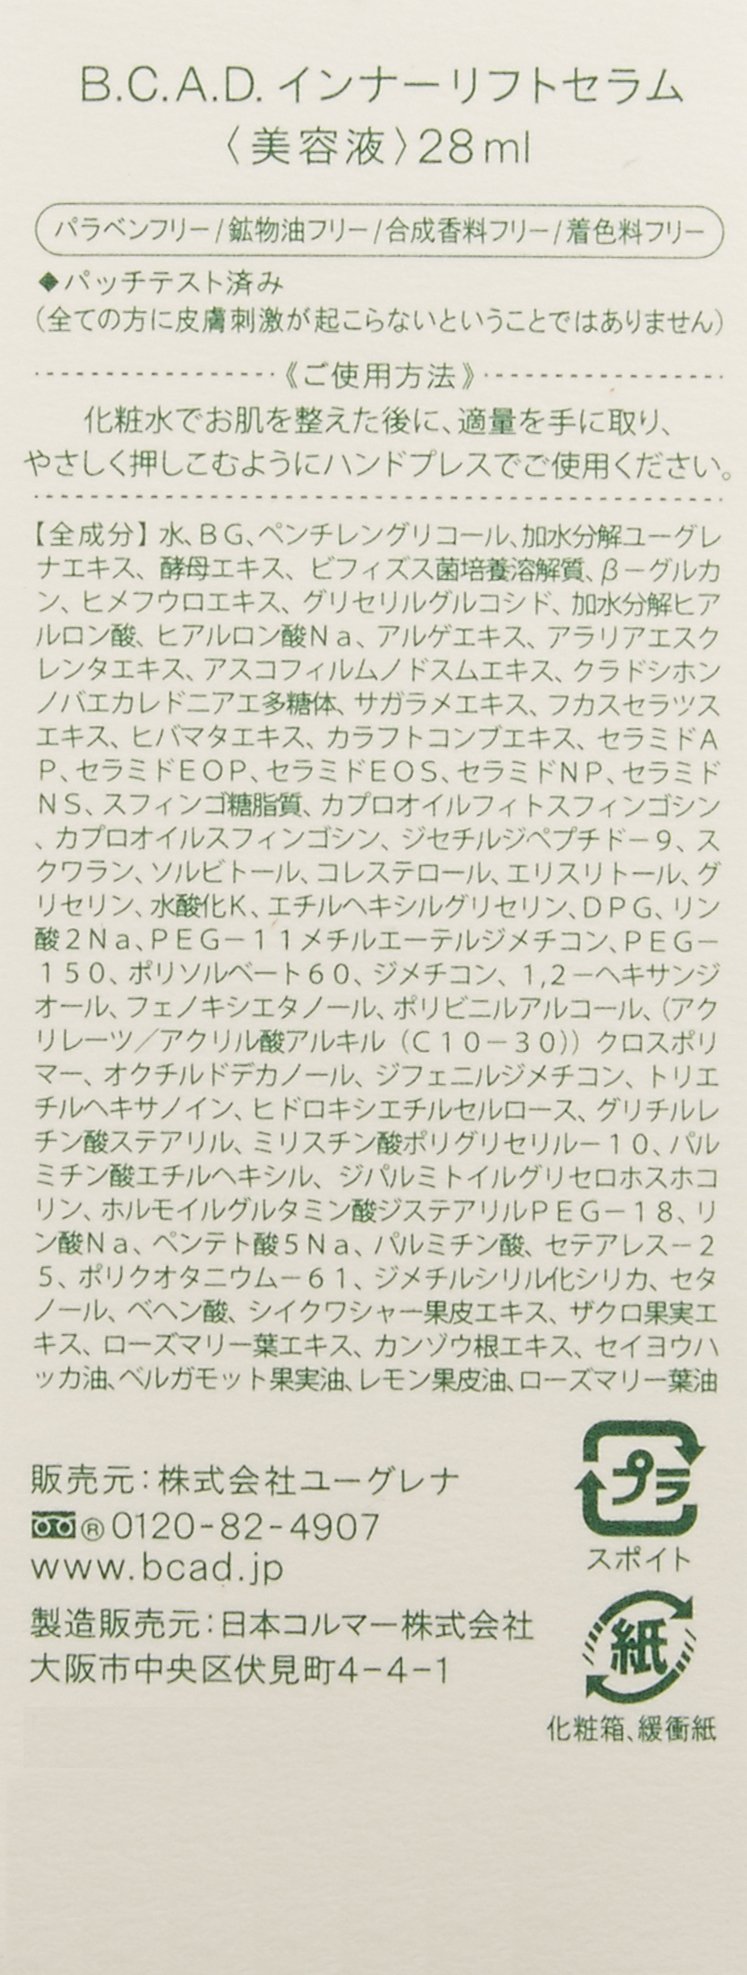 B.C.A.D. インナーリフトセラム
〈美容液〉28ml
パラベンフリー/鉱物油フリー/合成香料フリー/着色料フリー
◆パッチテスト済み
(全ての方に皮膚刺激が起こらないということではありません)
《ご使用方法》
化粧水でお肌を整えた後に、適量を手に取り、
やさしく押しこむようにハンドプレスでご使用ください。
【全成分】水、BG、ペンチレングリコール、加水分解ユーグレ
ナエキス、酵母エキス、ビフィズス菌培養溶解質、β-グルカ
ン、ヒメフウロエキス、グリセリルグルコシド、加水分解ヒア
ルロン酸、ヒアルロン酸Na、アルゲエキス、アラリアエスク
レンタエキス、アスコフィルムノドスムエキス、クラドシホン
ノバエカレドニアエ多糖体、サガラメエキス、フカスセラツス
エキス、ヒバマタエキス、カラフトコンブエキス、セラミドA
P、セラミドEOP、セラミドEOS、セラミドNP、セラミド
NS、スフィンゴ糖脂質、カプロオイルフィトスフィンゴシン
、カプロオイルスフィンゴシン、ジセチルジペプチド-9、ス
クワラン、ソルビトール、コレステロール、エリスリトール、グ
リセリン、水酸化K、エチルヘキシルグリセリン、DPG、リン
酸2Na、PEG-11メチルエーテルジメチコン、PEG-
150、ポリソルベート60、ジメチコン、1,2-ヘキサンジ
オール、フェノキシエタノール、ポリビニルアルコール、(アク
リレーツ/アクリル酸アルキル(C10-30))クロスポリ
マー、オクチルドデカノール、ジフェニルジメチコン、トリエ
チルヘキサノイン、ヒドロキシエチルセルロース、グリチルレ
チン酸ステアリル、ミリスチン酸ポリグリセリル-10、パル
ミチン酸エチルヘキシル、ジパルミトイルグリセロホスホコ
リン、ホルモイルグルタミン酸ジステアリルPEG-18、リ
ン酸Na、ペンテト酸5Na、パルミチン酸、セテアレス-2
5、ポリクオタニウム-61、ジメチルシリル化シリカ、セタ
ノール、ベヘン酸、シイクワシャー果皮エキス、ザクロ果実エ
キス、ローズマリー葉エキス、カンゾウ根エキス、セイヨウハ
ッカ油、ベルガモット果実油、レモン果皮油、ローズマリー葉油
販売元:株式会社ユーグレナ
®0120-82-4907
www.bcad.jp
製造販売元:日本コルマー株式会社
大阪市中央区伏見町4-4-1
プラ
スポイト
紙
化粧箱、緩衝紙